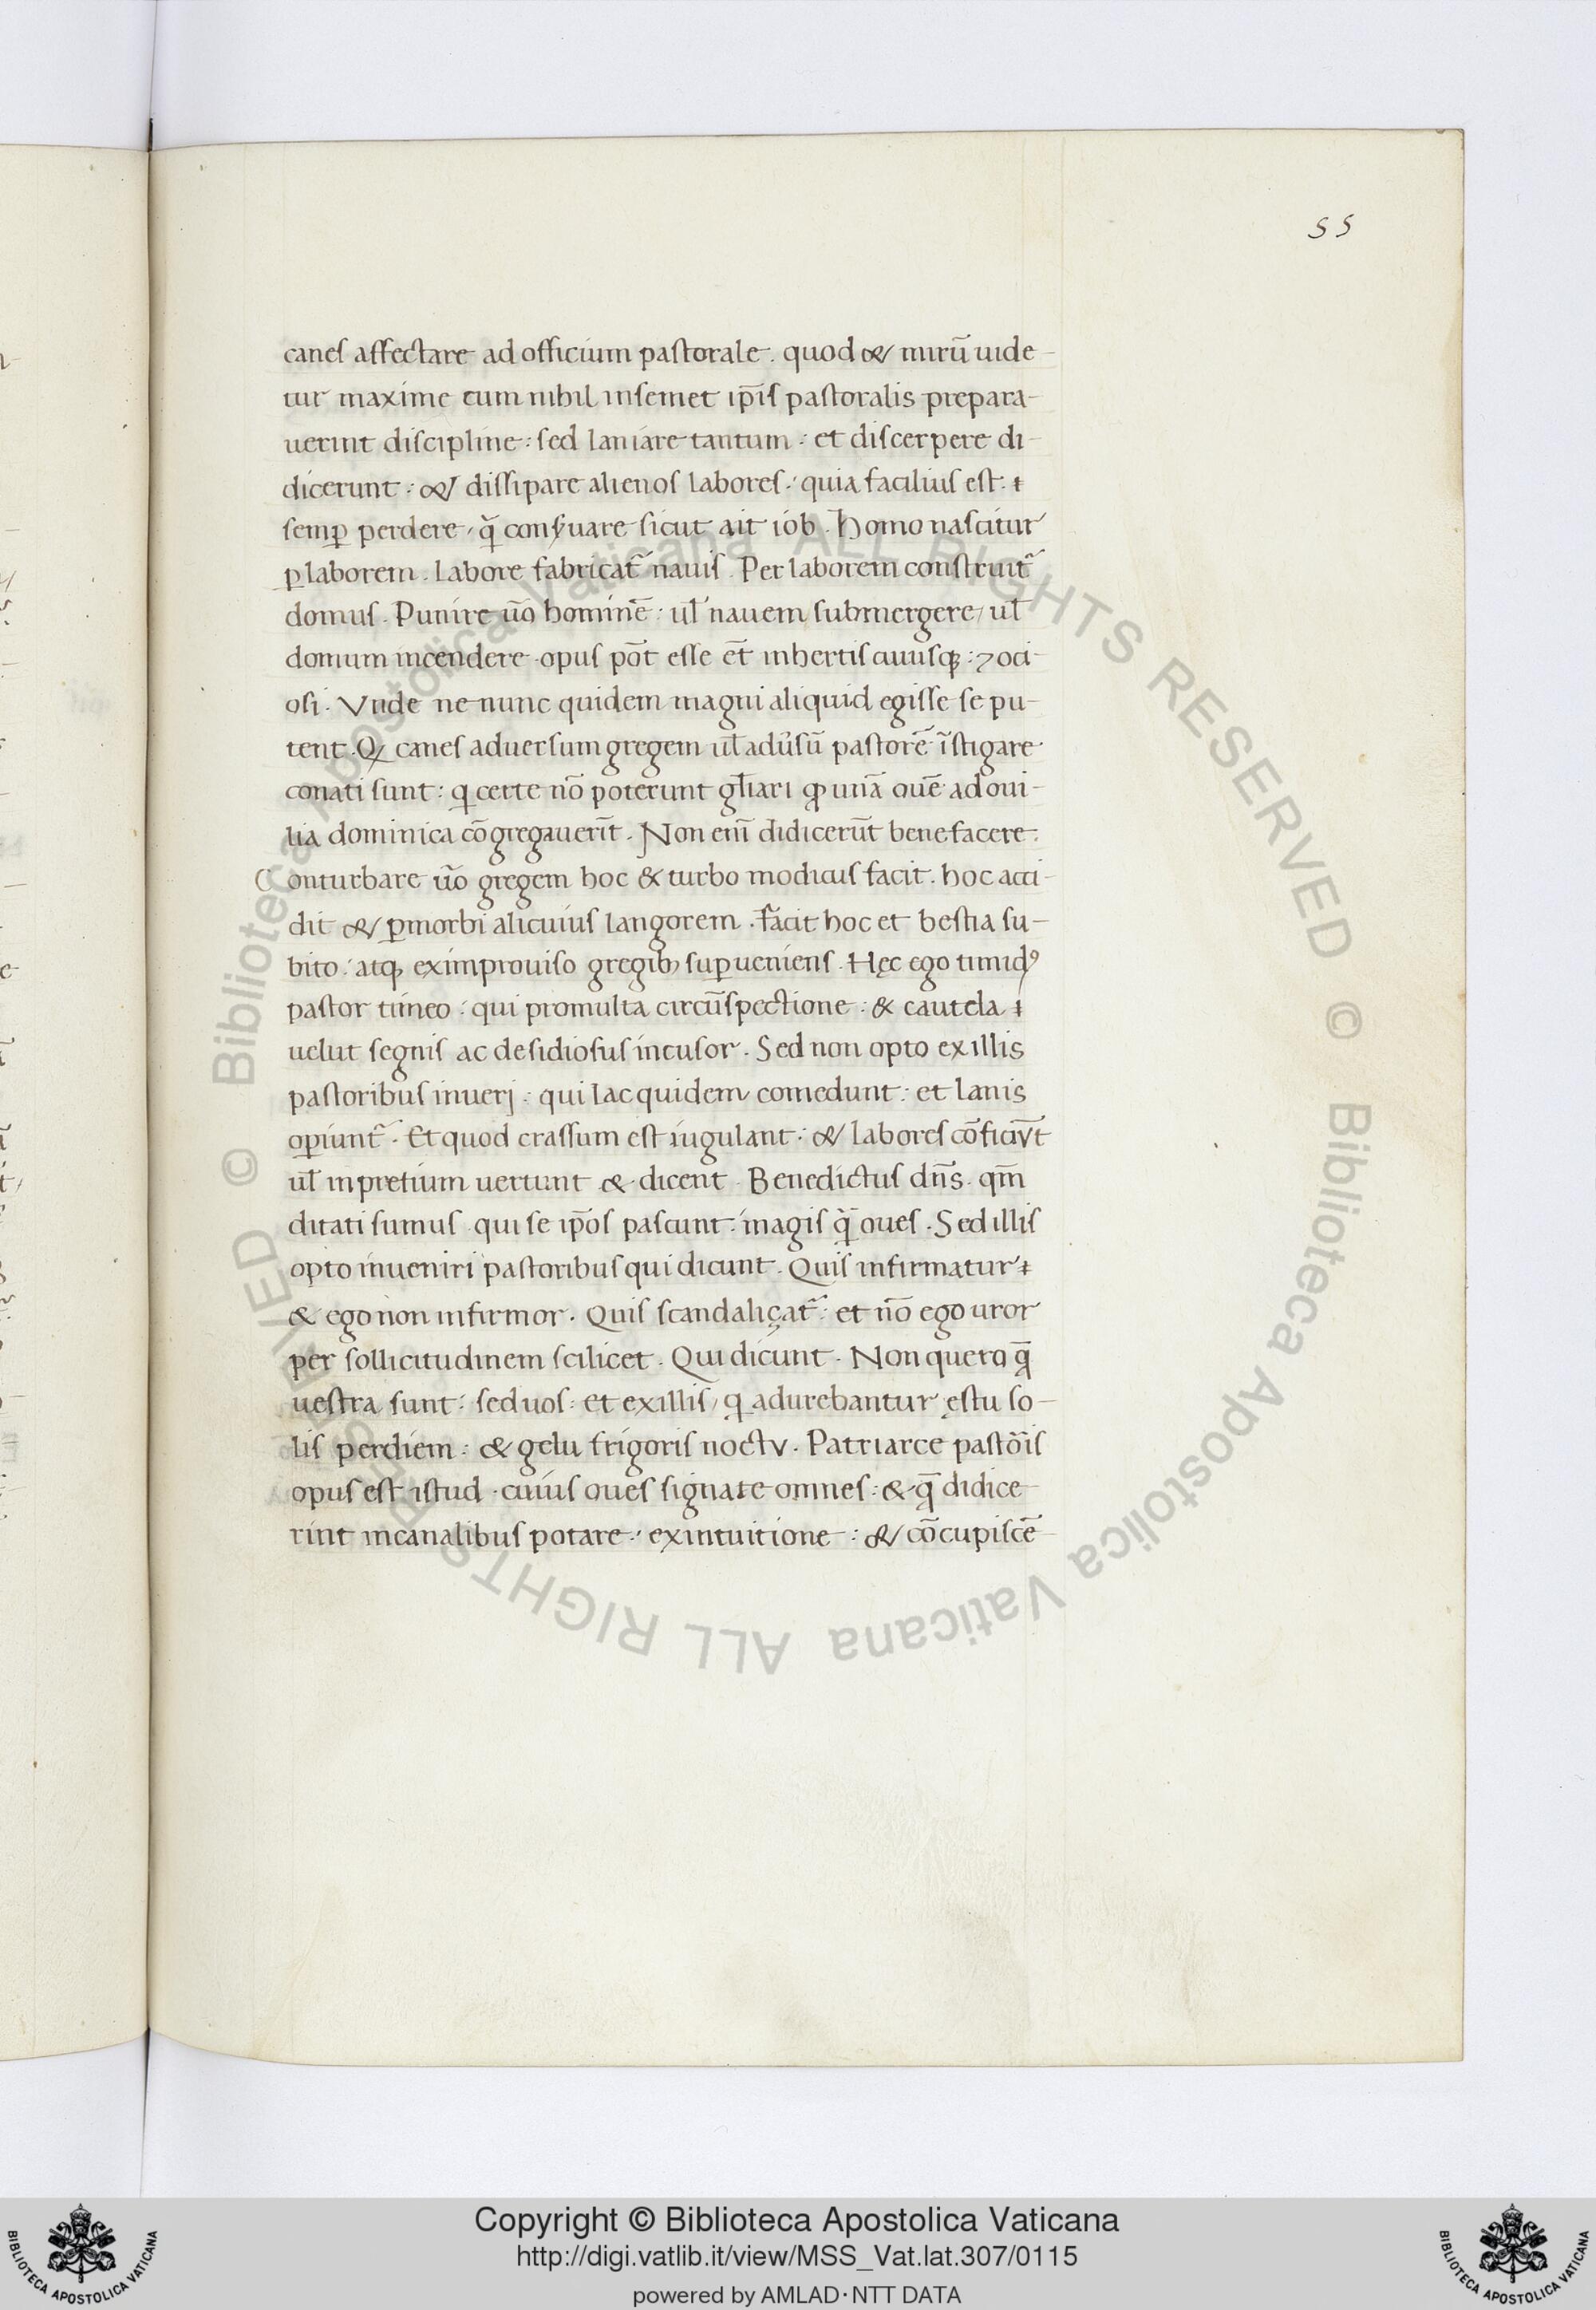 55
canes affectare ad officium pastorale. quod & mirū uide-
tur maxime cum nihil insemet ip̄is pastoralis prepara-
uerint discipline: sed laniare tantum: et discerpere di-
dicerunt: & dissipare alienos labores: quia facilius est
semꝑ perdere, q̄ conẜuare sicut ait iob. Homo nascitur
ꝑ laborem. Labore fabricat᷑ nauis. Per laborem construit᷑
domus. Punire uō hominē: ul̄ nauem submergere, ul̄
domum incendere. opus pōt esse et̄ inhertis cuiusqꝫ: ⁊ oci-
osi. Vnde ne nunc quidem magni aliquid egisse se pu-
tent. Qꝫ canes aduersum gregem ul̄ adūsū pastorē īstigare
conati sunt: q certe nō poterunt gl̄iari ꝙ unā ouē ad oui-
lia dominica cōgregauerīt. Non enī didicerūt bene facere.
Conturbare uō gregem hoc & turbo modicus facit. hoc acci-
dit & ꝑ morbi alicuius langorem. facit hoc et bestia su-
bito: atqꝫ eximprouiso gregibꝫ suꝑueniens. Hęc ego timidꝰ
pastor timeo: qui promulta circūspectione: & cautela
uelut segnis ac desidiosus incusor. Sed non opto exillis
pastoribus inuerj: qui lac quidem comedunt: et lanis
oꝑiunt᷑. Et quod crassum est iugulant: & labores cōficiūt
ul̄ inpretium uertunt & dicent. Benedictus dn̄s. qm̄
ditati sumus. qui se ip̄os pascunt: magis q̄ oues. Sed illis
opto inueniri pastoribus qui dicunt. Quis infirmatur
& ego non infirmor. Quis scandaliçat᷑: et nō ego uror
per sollicitudinem scilicet. Qui dicunt. Non quero q̄
uestra sunt: sed uos: et exillis, q adurebantur ęstu so-
lis perdiem: & gelu frigoris noctv. Patriarce pastōis
opus est istud. cuius oues signate omnes: & q̄ didice-
rint incanalibus potare: exintuitione: & cōcupiscē-
Copyright © Biblioteca Apostolica Vaticana
http://digi.vatlib.it/view/MSS_Vat.lat.307/0115
powered by AMLAD·NTT DATA
BIBLIOTECA APOSTOLICA VATICANA
BIBLIOTECA APOSTOLICA VATICANA
© Biblioteca Apostolica Vaticana ALL RIGHTS RESERVED © Biblioteca Apostolica Vaticana ALL RIGHTS RESERVED